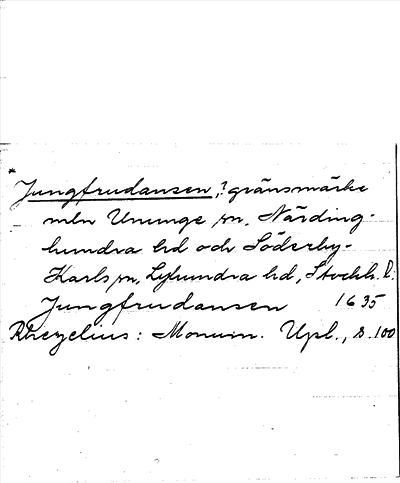 *
Jungfrudansen, ? gränsmärke
mln Ununge sn, Närding-
hundra hd och Söderby-
Karls sn, Lyhundra hd, Stockh. l.
Jungfrudansen 1635
Rhezelius: Monum. Upl., s. 100